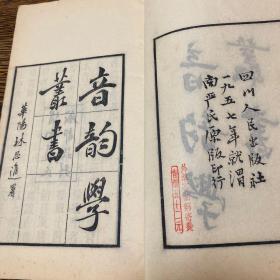 四川人民出版社
一九五七年就渭
南严氏原版印行
音韻學
叢書
華陽林思進署